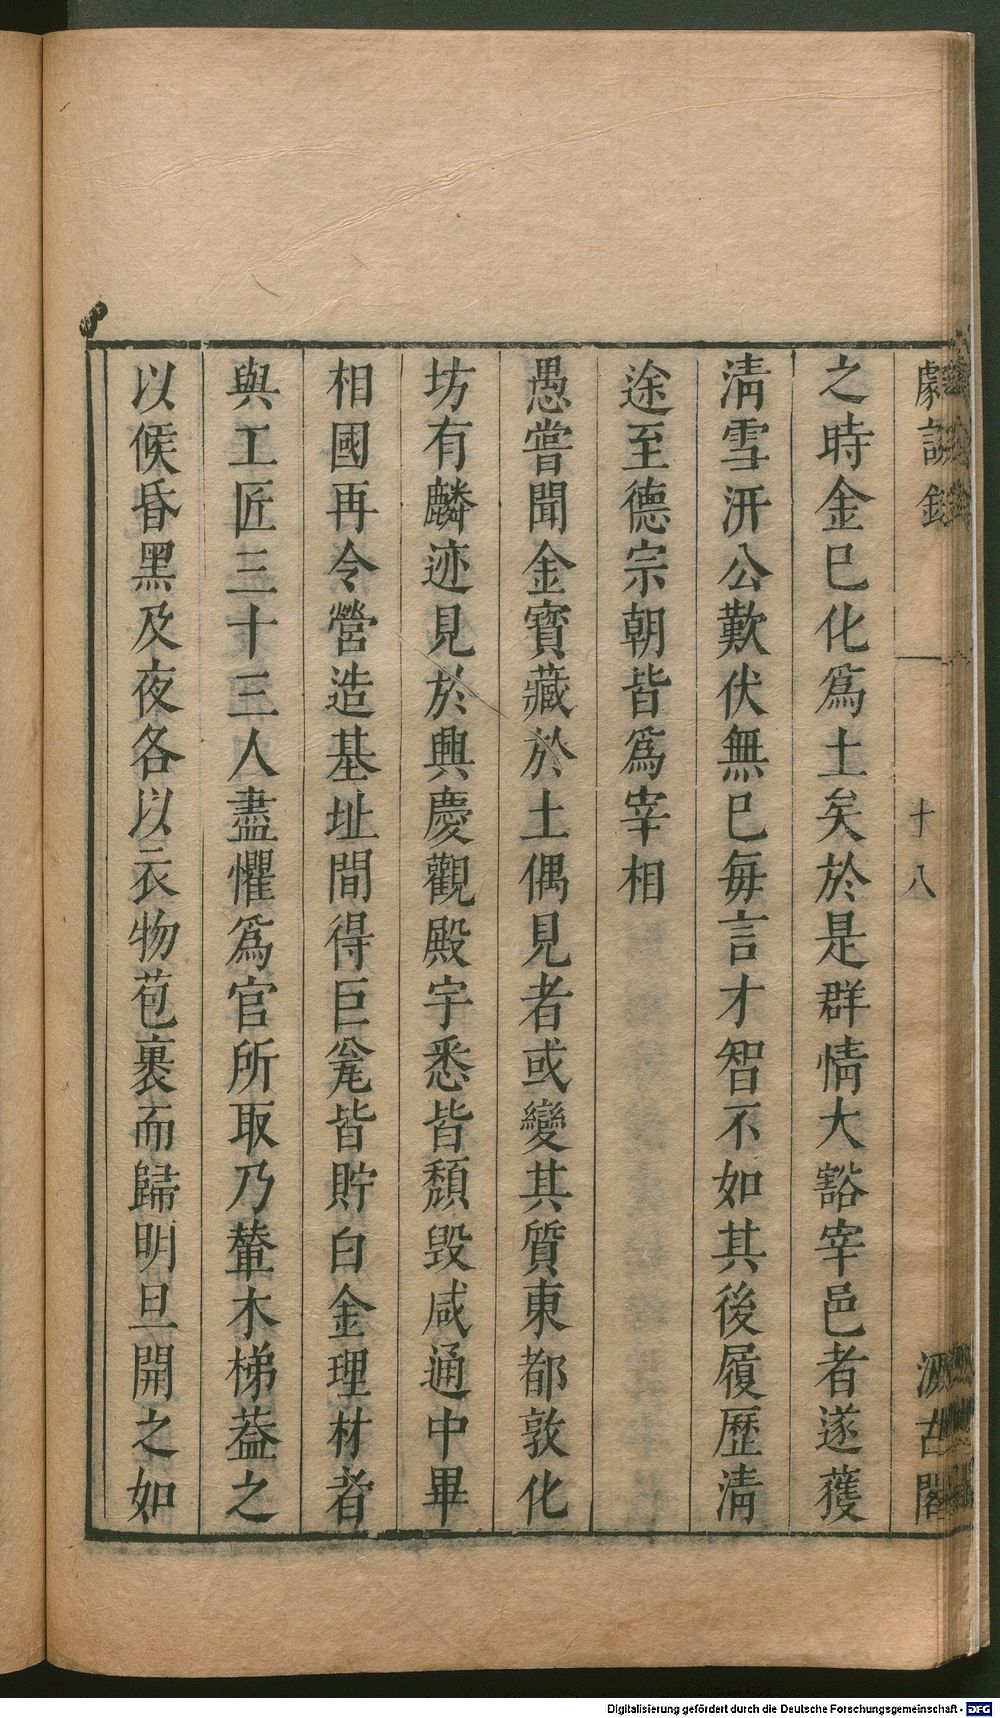 劇談錄
十八
汲古閣
之時金已化爲土矣於是群情大豁宰邑者遂獲
淸雪汧公歎伏無已每言才智不如其後履歷淸
途至德宗朝皆爲宰相
愚嘗聞金寳藏於土偶見者或變其質東都敦化
坊有麟迹見於興慶觀殿宇悉皆頽毀咸通中畢
相國再令營造基址間得巨瓮皆貯白金理材者
與工匠三十三人盡懼爲官所取乃輦木梯葢之
以候昏黑及夜各以衣物苞裹而歸明旦開之如
Digitalisierung gefördert durch die Deutsche Forschungsgemeinschaft - DFG